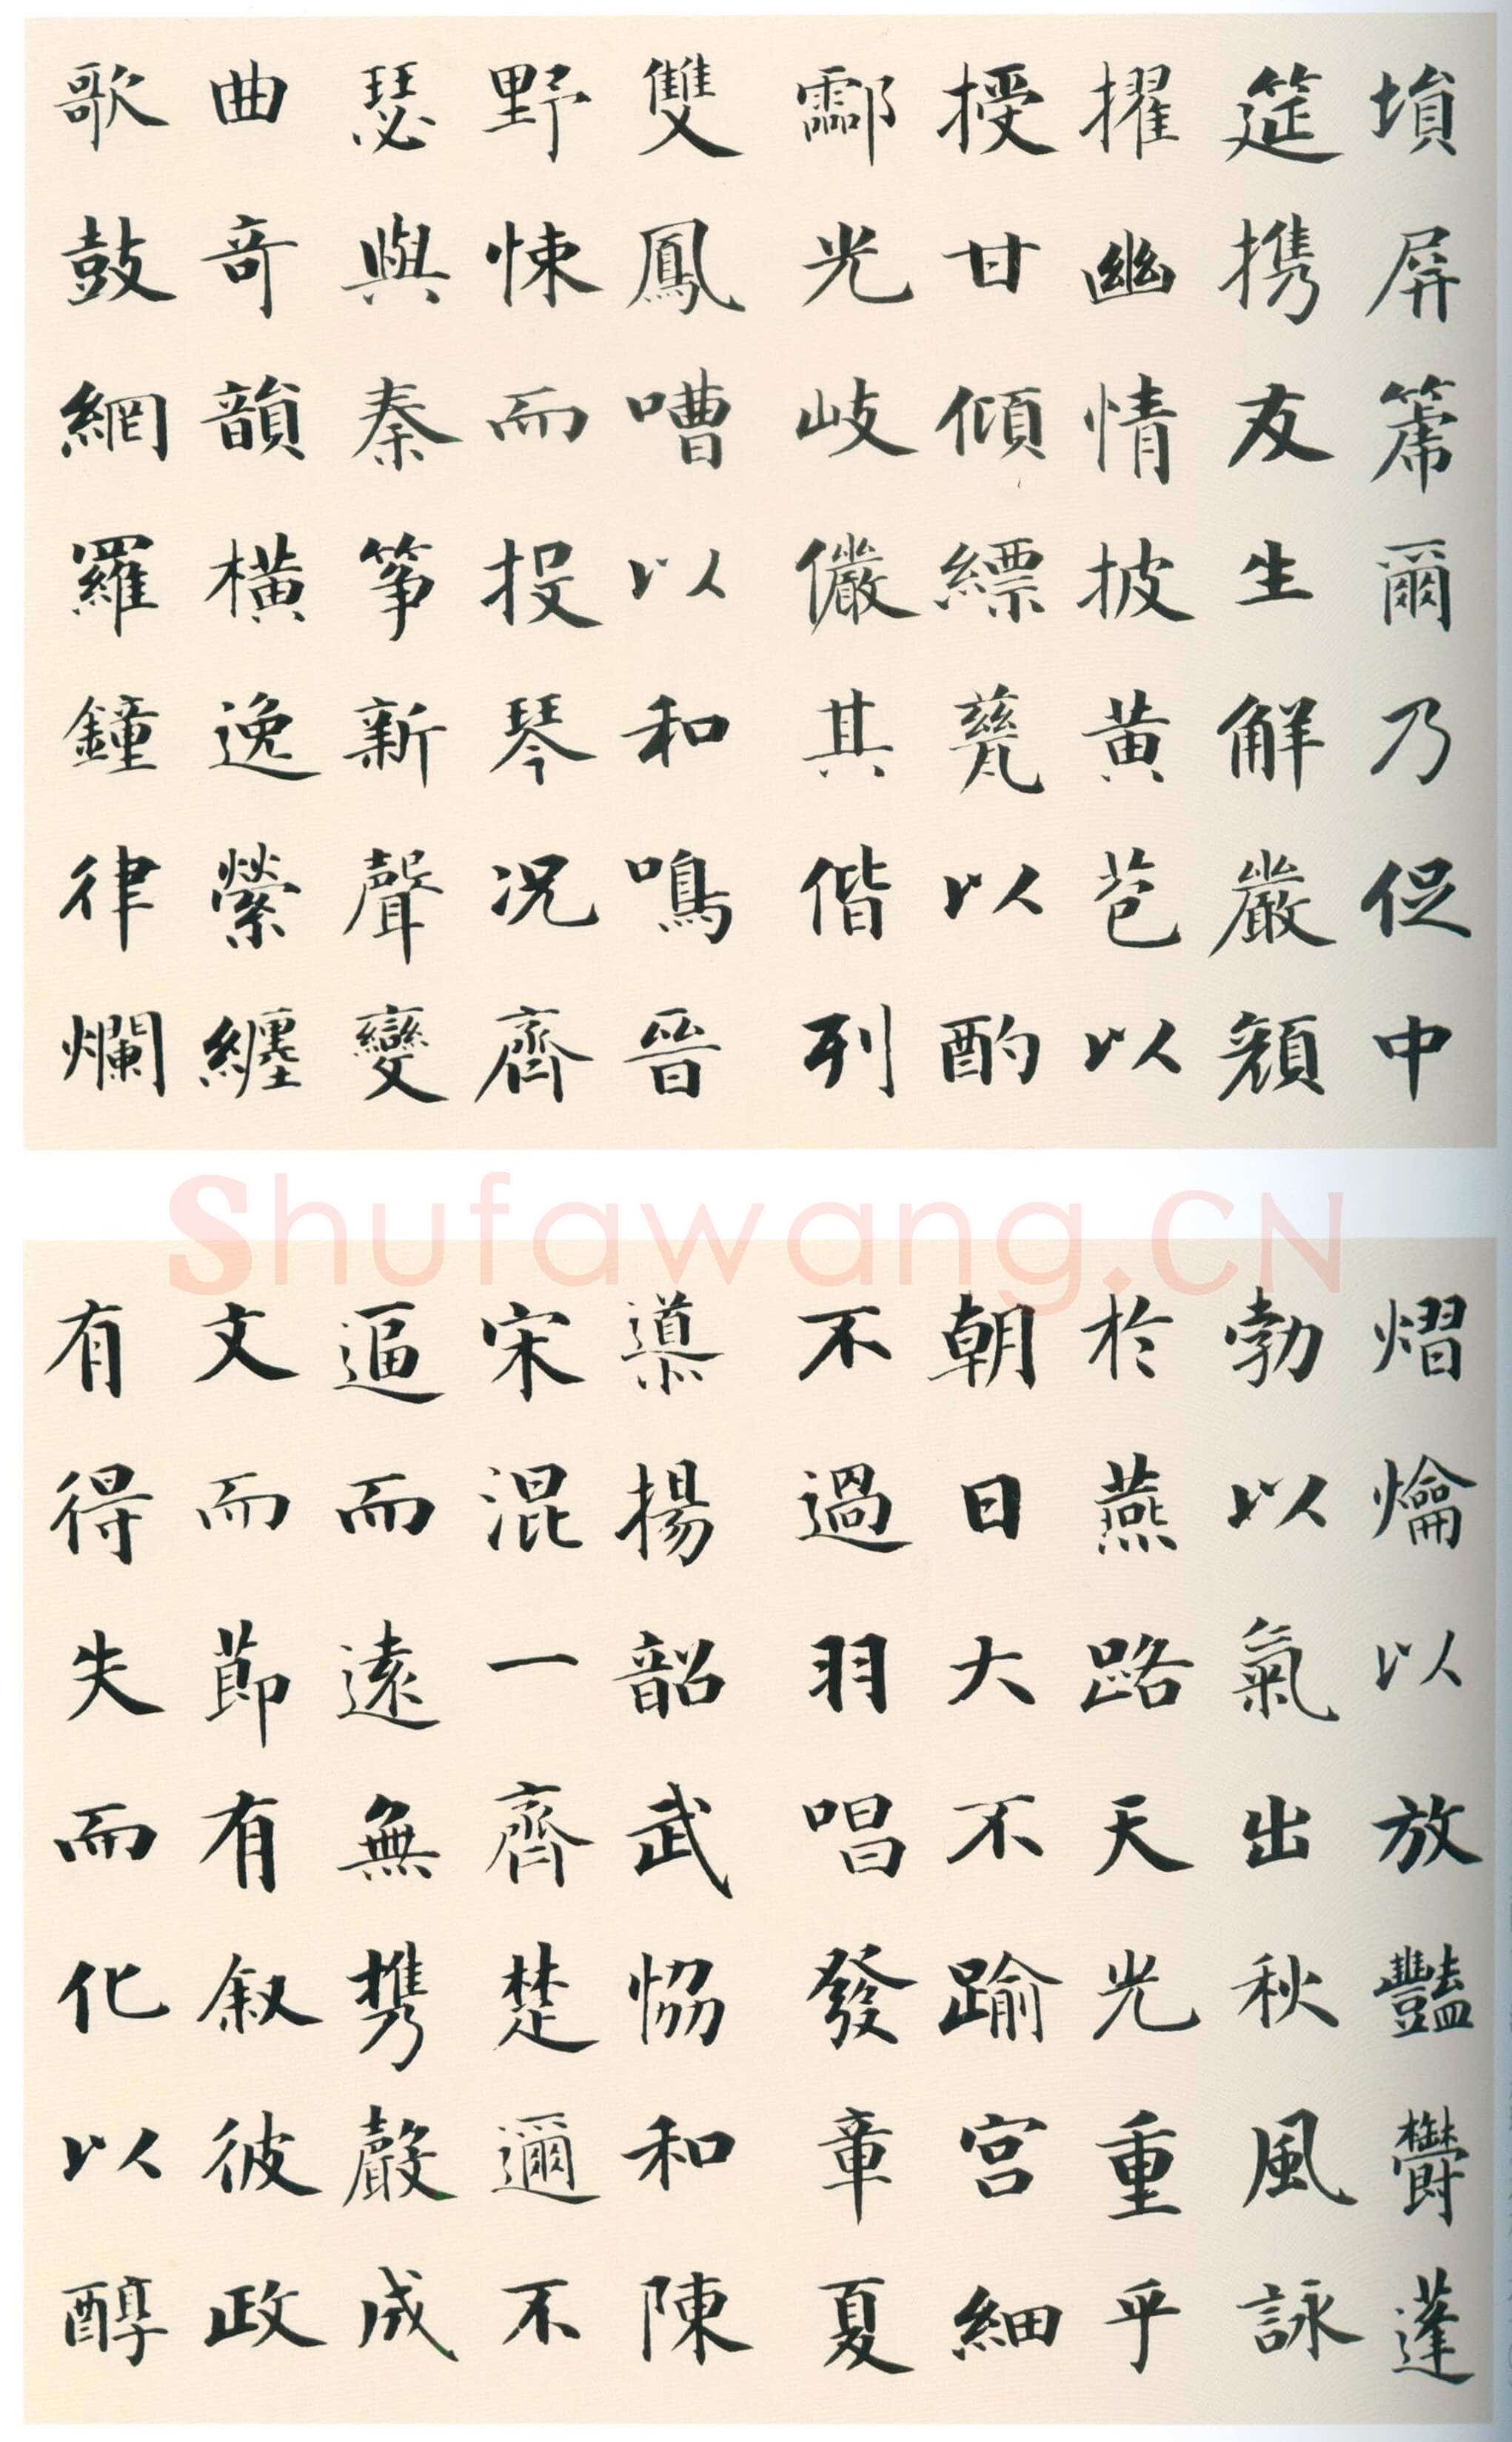 塤屏篪爾乃促中
筵携友生解嚴顔
擢幽情披黄苞以
授甘傾縹甆以酌
酃光岐儼其偕列
雙鳳嘈以和鳴晉
野悚而投琴況齊
瑟與秦筝新聲變
曲奇韻横逸縈纏
歌鼓網羅鐘律爛
Shufawang.CN
熠爚以放豔鬱蓬
勃以氣出秋風詠
於燕路天光重乎
朝日大不踰宫細
不過羽唱發章夏
導揚韶武協和陳
宋混一齊楚邇不
逼而遠無携聲成
文而節有叙彼政
有得失而化以醇